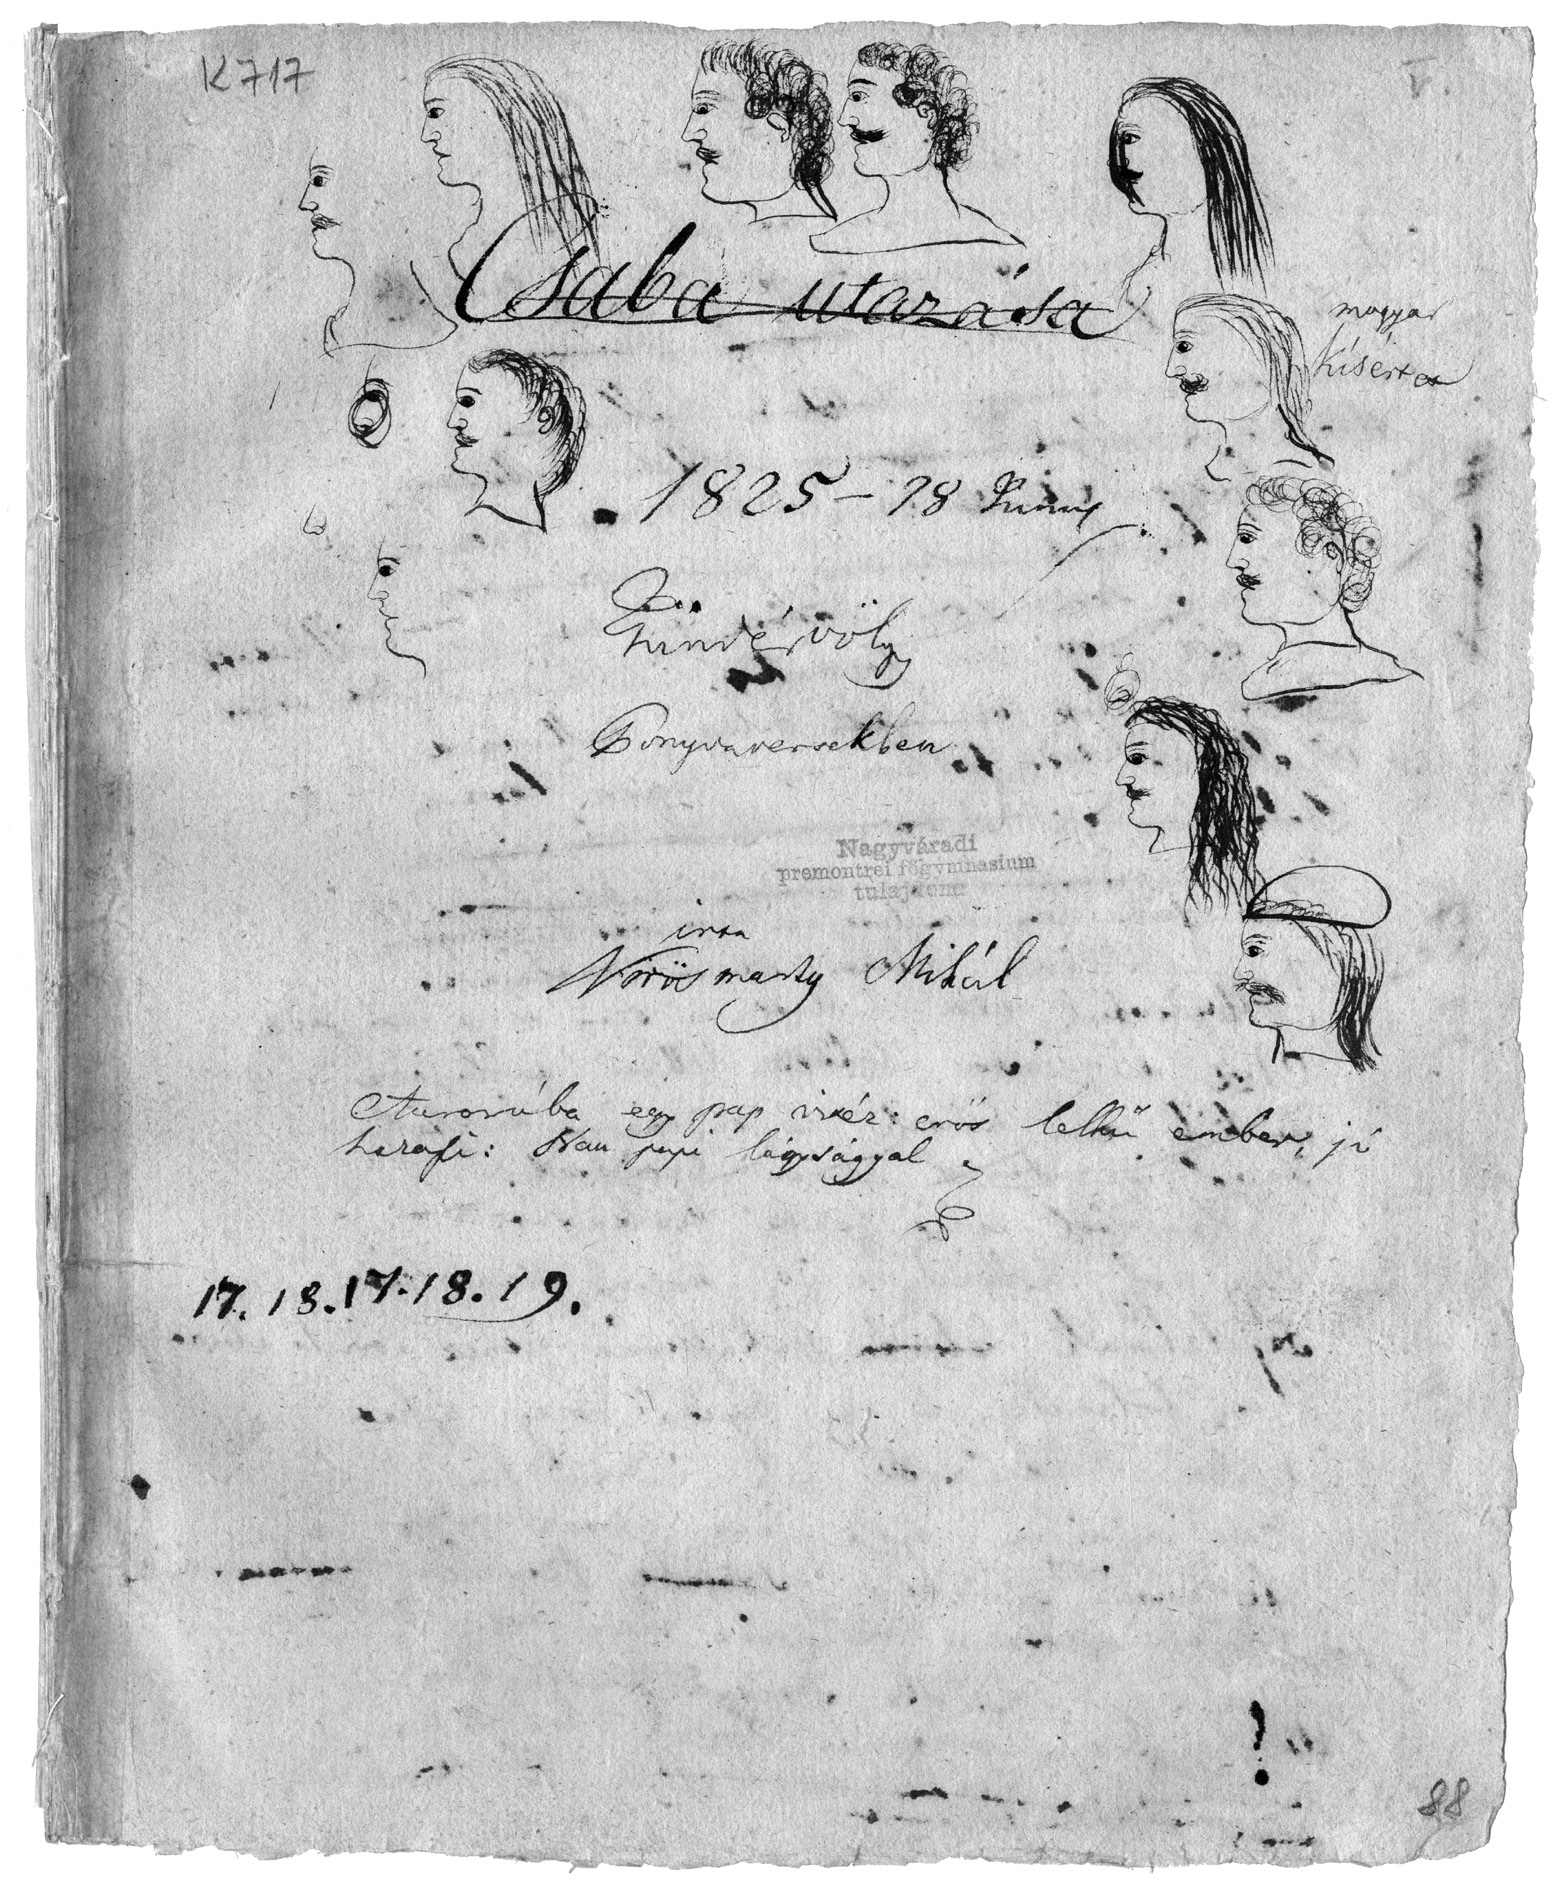 K 717
Csaba utazása
magyar
kísértet
1825 – 18 Juni
Tündérvölg
Ponyvaversekben
Nagyváradi
premontrei főgymnasium
tulajdona
irta
Vörösmarty Mihál
Aurorába egy pap vitéz: erös lelkű ember, jó
hazafi: Nem papi lágysággyal
17. 18. 17. 18. 19.
!
88